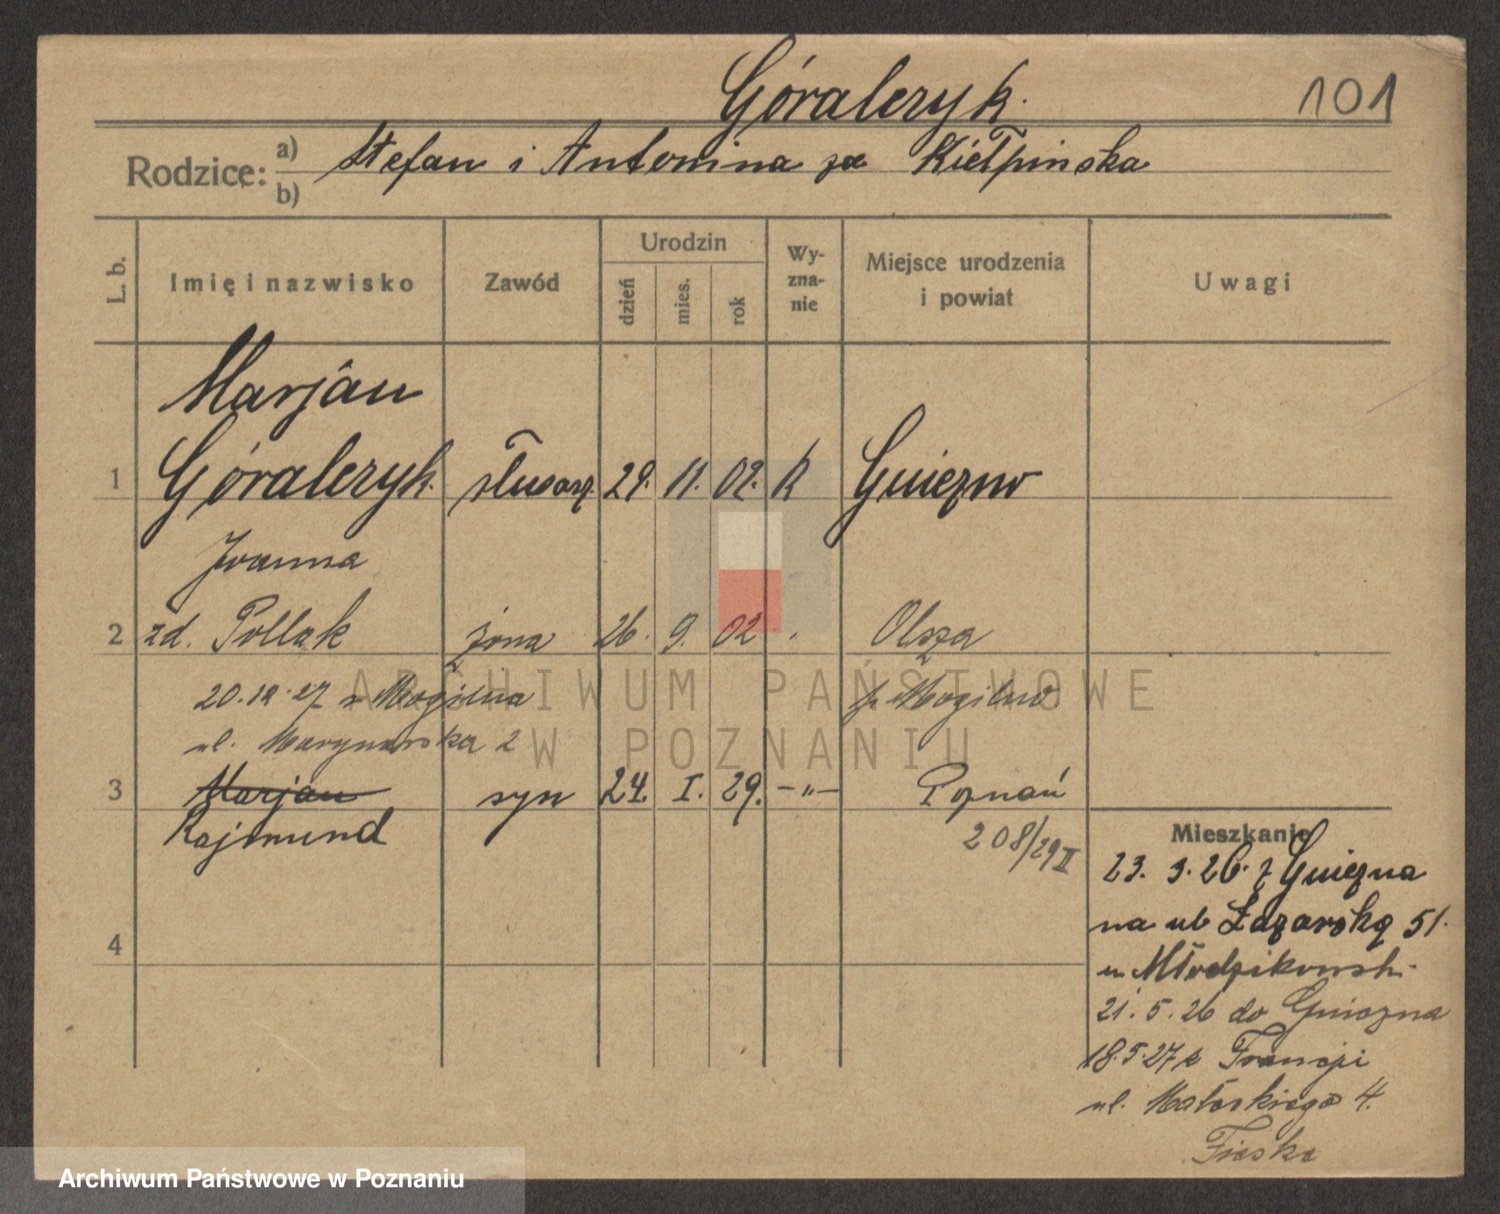 Góralczyk. 101
Rodzice: a) b) Stefan i Antonina za Kiełpińska
L. b. Imię i nazwisko Zawód Urodzin dzień mies. rok Wy-zna-nie Miejsce urodzenia i powiat Uwagi
Marjan
1 Góralczyk. ślusarz 29. 11. 02. R Gniezno
Joanna
2 zd. Pollak żona 26. 9. 02 Olsza
20.12.27 z Mogilna p. Mogilno
ul. Marynarska 2
3 Marjan syn 24. I. 29. —„— Poznań
Rajmund 208/29 II
4
Mieszkanie
23. 3. 26. z Gniezna
na ul. Łazarską 51.
u Młodzikowski
21. 5. 26 do Gniezna
18.5.27 z Francji
ul. 4.
ARCHIWUM PAŃSTWOWE
W POZNANIU
Archiwum Państwowe w Poznaniu